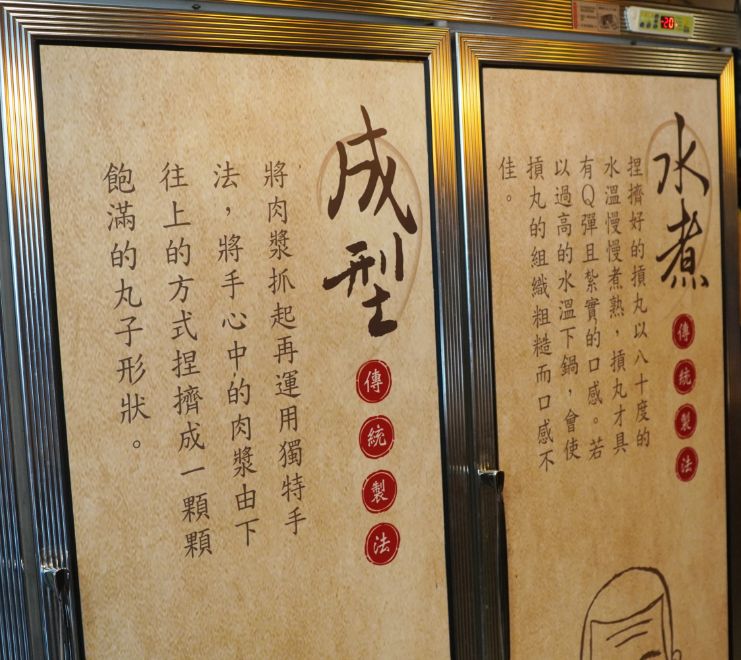 水煮
傳統製法
捏擠好的摃丸以八十度的
水溫慢慢煮熟，摃丸才具
有Ｑ彈且紮實的口感。若
以過高的水溫下鍋，會使
摃丸的組織粗糙而口感不
佳。
成型
傳統製法
將肉漿抓起再運用獨特手
法，將手心中的肉漿由下
往上的方式捏擠成一顆顆
飽滿的丸子形狀。
-20